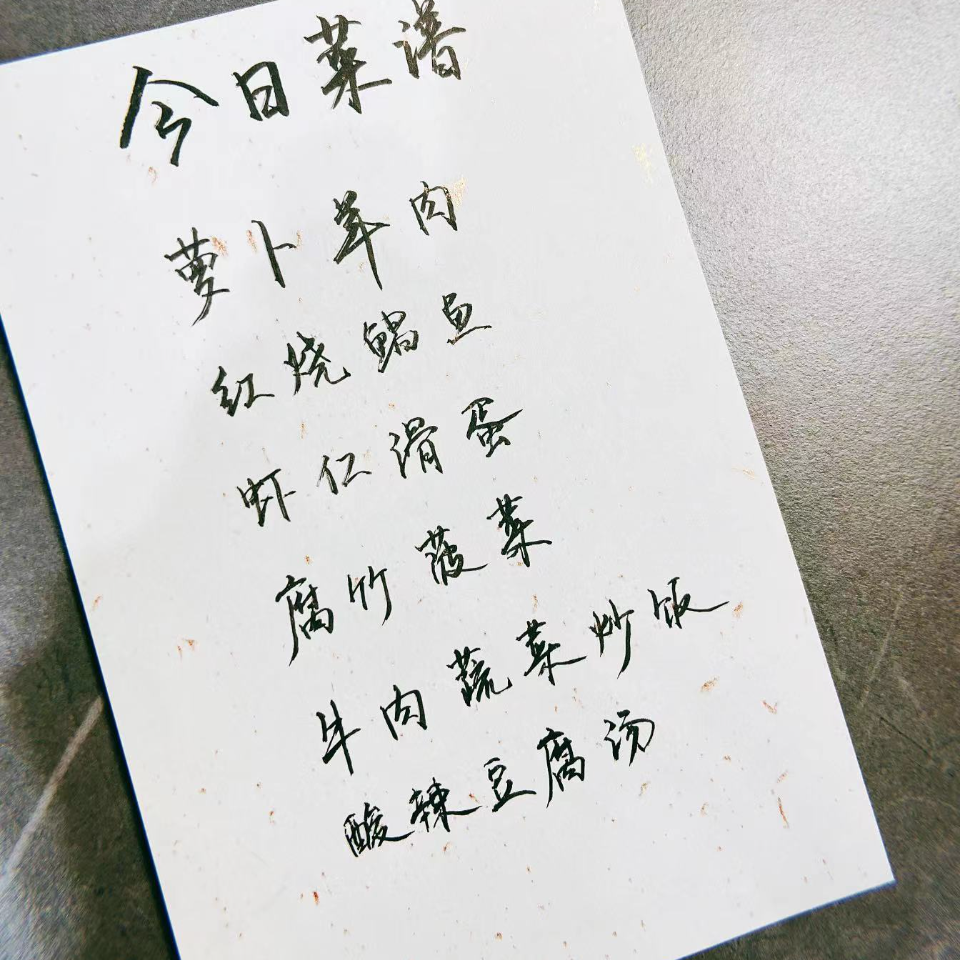 今日菜谱
萝卜羊肉
红烧鲳鱼
虾仁滑蛋
腐竹菠菜
牛肉蔬菜炒饭
酸辣豆腐汤